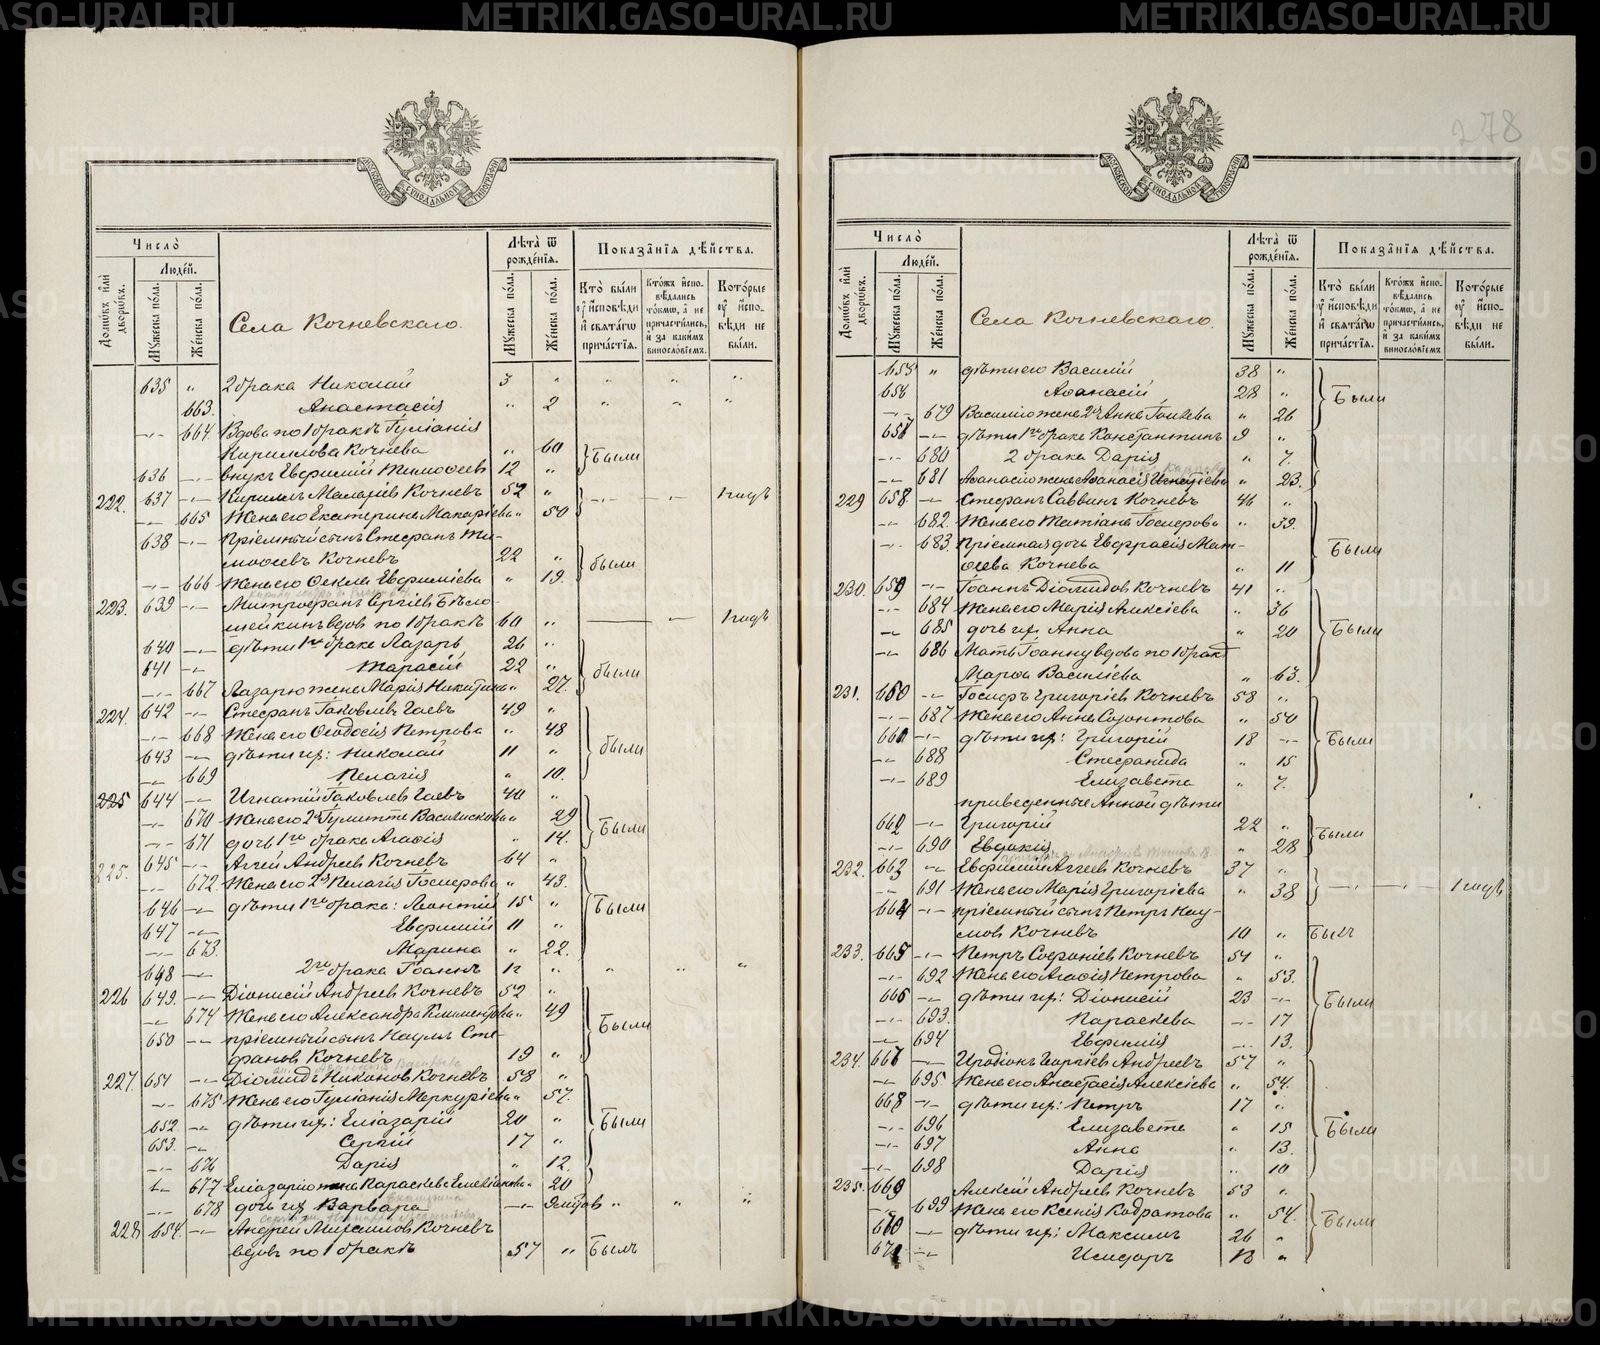 METRIKI.GASO-URAL.RU
278
МОСКОВСКОЙ СѴНОДАЛЬНОЙ ТИПОГРАФІИ
Число̀
Людéй.
Лѣта̀ ѿ рождéнїя.
Показа̑нїѧ дѣ́йства.
Домѡ́въ и҆лѝ дворѡ́въ.
Мꙋ́жеска по́ла.
Жéнска по́ла.
Села Кочневскаго.
Мꙋ́жеска по́ла.
Жéнска по́ла.
Кто̀ бы́ли ᲂу҆ и҆́сповѣди и҆ свѧта́гѡ прича́стїѧ.
Кто́жъ и҆спо- вѣ́дались то́кмѡ, а҆ не причасти́лись, и҆ за каки́мъ виносло́вїемъ.
Кото́рые ᲂу҆ и҆́спо- вѣди не бы́ли.
635 " 2 брака Николай 3 " " " "
663. Анастасія " 2 " " "
-"- 664 Вдова по 1 бракѣ Іуліанія
Кириллова Кочнева " 60 Были
636 -"- внукъ Евфимій Тимофеев 12 "
222. 637 -"- Кириллъ Макаріев Кочневъ 52 " -"- -"- 1 годъ
-"- 665 Жена его Екатерина Макаріева " 50
638 -"- Пріемный сынъ Стефанъ Ти-
мофеевъ Кочневъ 22 " были
-"- 666 Жена его Фекла Евфиміева " 19.
223. 639 -"- Митрофанъ Сергіев Бѣло-
шейкинъ вдов по 1 бракѣ 60 " 1 годъ
640 -"- дѣти 1го брака Лазарь 26 "
641 -"- Тарасій 22 " были
-"- 667 Лазарю жена Марія Никитина " 27.
224. 642 -"- Стефанъ Іаковлевъ Гаевъ 49 "
-"- 668 Жена его Феодосія Петрова " 48
643 -"- дѣти их: Николай 11 " были
-"- 669 Пелагія " 10.
225 644 -"- Игнатій Іаковлев Гаевъ 40 "
-"- 670 Жена его 2я Іулитта Василискова " 29
-"- 671 дочь 1го брака Агафія " 14. Были
225. 645 -"- Аггей Андреев Кочневъ 64 "
-"- 672 Жена его 2я Пелагія Іосифова " 43.
646 -"- дѣти 1го брака: Леонтій 15 " Были
647 -"- Евфимій 11 "
-"- 673. Марина " 22.
648 -"- 2го брака Іоаннъ 1г " " " "
226 649. -"- Діонисій Андреев Кочневъ 52 "
-"- 674 Жена его Александра Климентова " 49
650 -"- пріемный сынъ Наумъ Сте- Были
фановъ Кочневъ 19 "
227. 651 -"- Діомидъ Никонов Кочневъ 58 "
-"- 675 Жена его Іуліанія Меркуріева " 57.
652 -"- дѣти их: Еліазарій 20 " Были
653. -"- Сергій 17 "
-"- 676 Дарія " 12.
-"- 677 Еліазарію жена Параскева Емеліанова " 20
-"- 678 дочь их Варвара -"- 9 мѣсяцов " " "
228 654. -"- Андрей Михаилов Кочневъ
вдовъ по 1 бракѣ 57 " Былъ
Число̀
Людéй.
Лѣта̀ ѿ рождéнїя.
Показа̑нїѧ дѣ́йства.
Домѡ́въ и҆лѝ дворѡ́въ.
Мꙋ́жеска по́ла.
Жéнска по́ла.
Села Кочневскаго.
Мꙋ́жеска по́ла.
Жéнска по́ла.
Кто̀ бы́ли ᲂу҆ и҆́сповѣди и҆ свѧта́гѡ прича́стїѧ.
Кто́жъ и҆спо- вѣ́дались то́кмѡ, а҆ не причасти́лись, и҆ за каки́мъ виносло́вїемъ.
Кото́рые ᲂу҆ и҆́спо- вѣди не бы́ли.
655 " дѣти его Василій 38 "
656 Афанасій 28 " Были
-"- 679 Василію жена 2я Анна Іоилева " 26
657 -"- дѣти 1го брака Константинъ 9 "
-"- 680 2 брака Дарія " 7.
-"- 681 Афанасію жена Афанасія " 23.
229 658. -"- Стефанъ Саввинъ Кочневъ 46 "
-"- 682. Жена его Татіана Іосифова " 39.
-"- 683. Пріемная дочь Евфрасія Мат- Были
феева Кочнева " 11
230. 659 -"- Іоаннъ Діомидов Кочневъ 41 "
-"- 684 Жена его Марія Алексіева " 36
-"- 685 дочь их Анна " 20 Были
-"- 686 Мать Іоанну вдова по 1 бракѣ
Марфа Василіева " 63.
231. 660 -"- Іосифъ Григоріев Кочневъ 58 "
-"- 687 Жена его Анна Созонтова " 50
661 -"- дѣти их: Григорій 18 -"- Были
-"- 688 Стефанида " 15
-"- 689 Елизавета " 7.
приведенные Анной дѣти
662 -"- Григорій 22 " Были
-"- 690 Евдокія " 28
232. 663 -"- Евфимій Аггеев Кочневъ 37 "
-"- 691 Жена его Марія Григоріева " 38 -"- -"- 1 годъ
664 -"- пріемный сынъ Петръ Нау-
мов Кочневъ 10 " Былъ
233. 665 -"- Петръ Софоніев Кочневъ 54 "
-"- 692 Жена его Агафія Петрова " 53.
666 -"- дѣти их: Діонисій 23 -"- Были
-"- 693. Параскева -"- 17
-"- 694 Евфимія -"- 13.
234. 667 -"- Иродіонъ Георгіев Андреевъ 57 "
-"- 695 Жена его Анастасія Алексіева " 54.
668 -"- дѣти их: Петръ 17 "
-"- 696 Елизавета " 15 Были
-"- 697 Анна " 13.
-"- 698 Дарія " 10
235. 669 Алексій Андреев Кочневъ 53 "
-"- 699 Жена его Ксенія Кодратова " 54. Были
670 -"- дѣти их: Максимъ 26 "
671 -"- Исидоръ 18 "